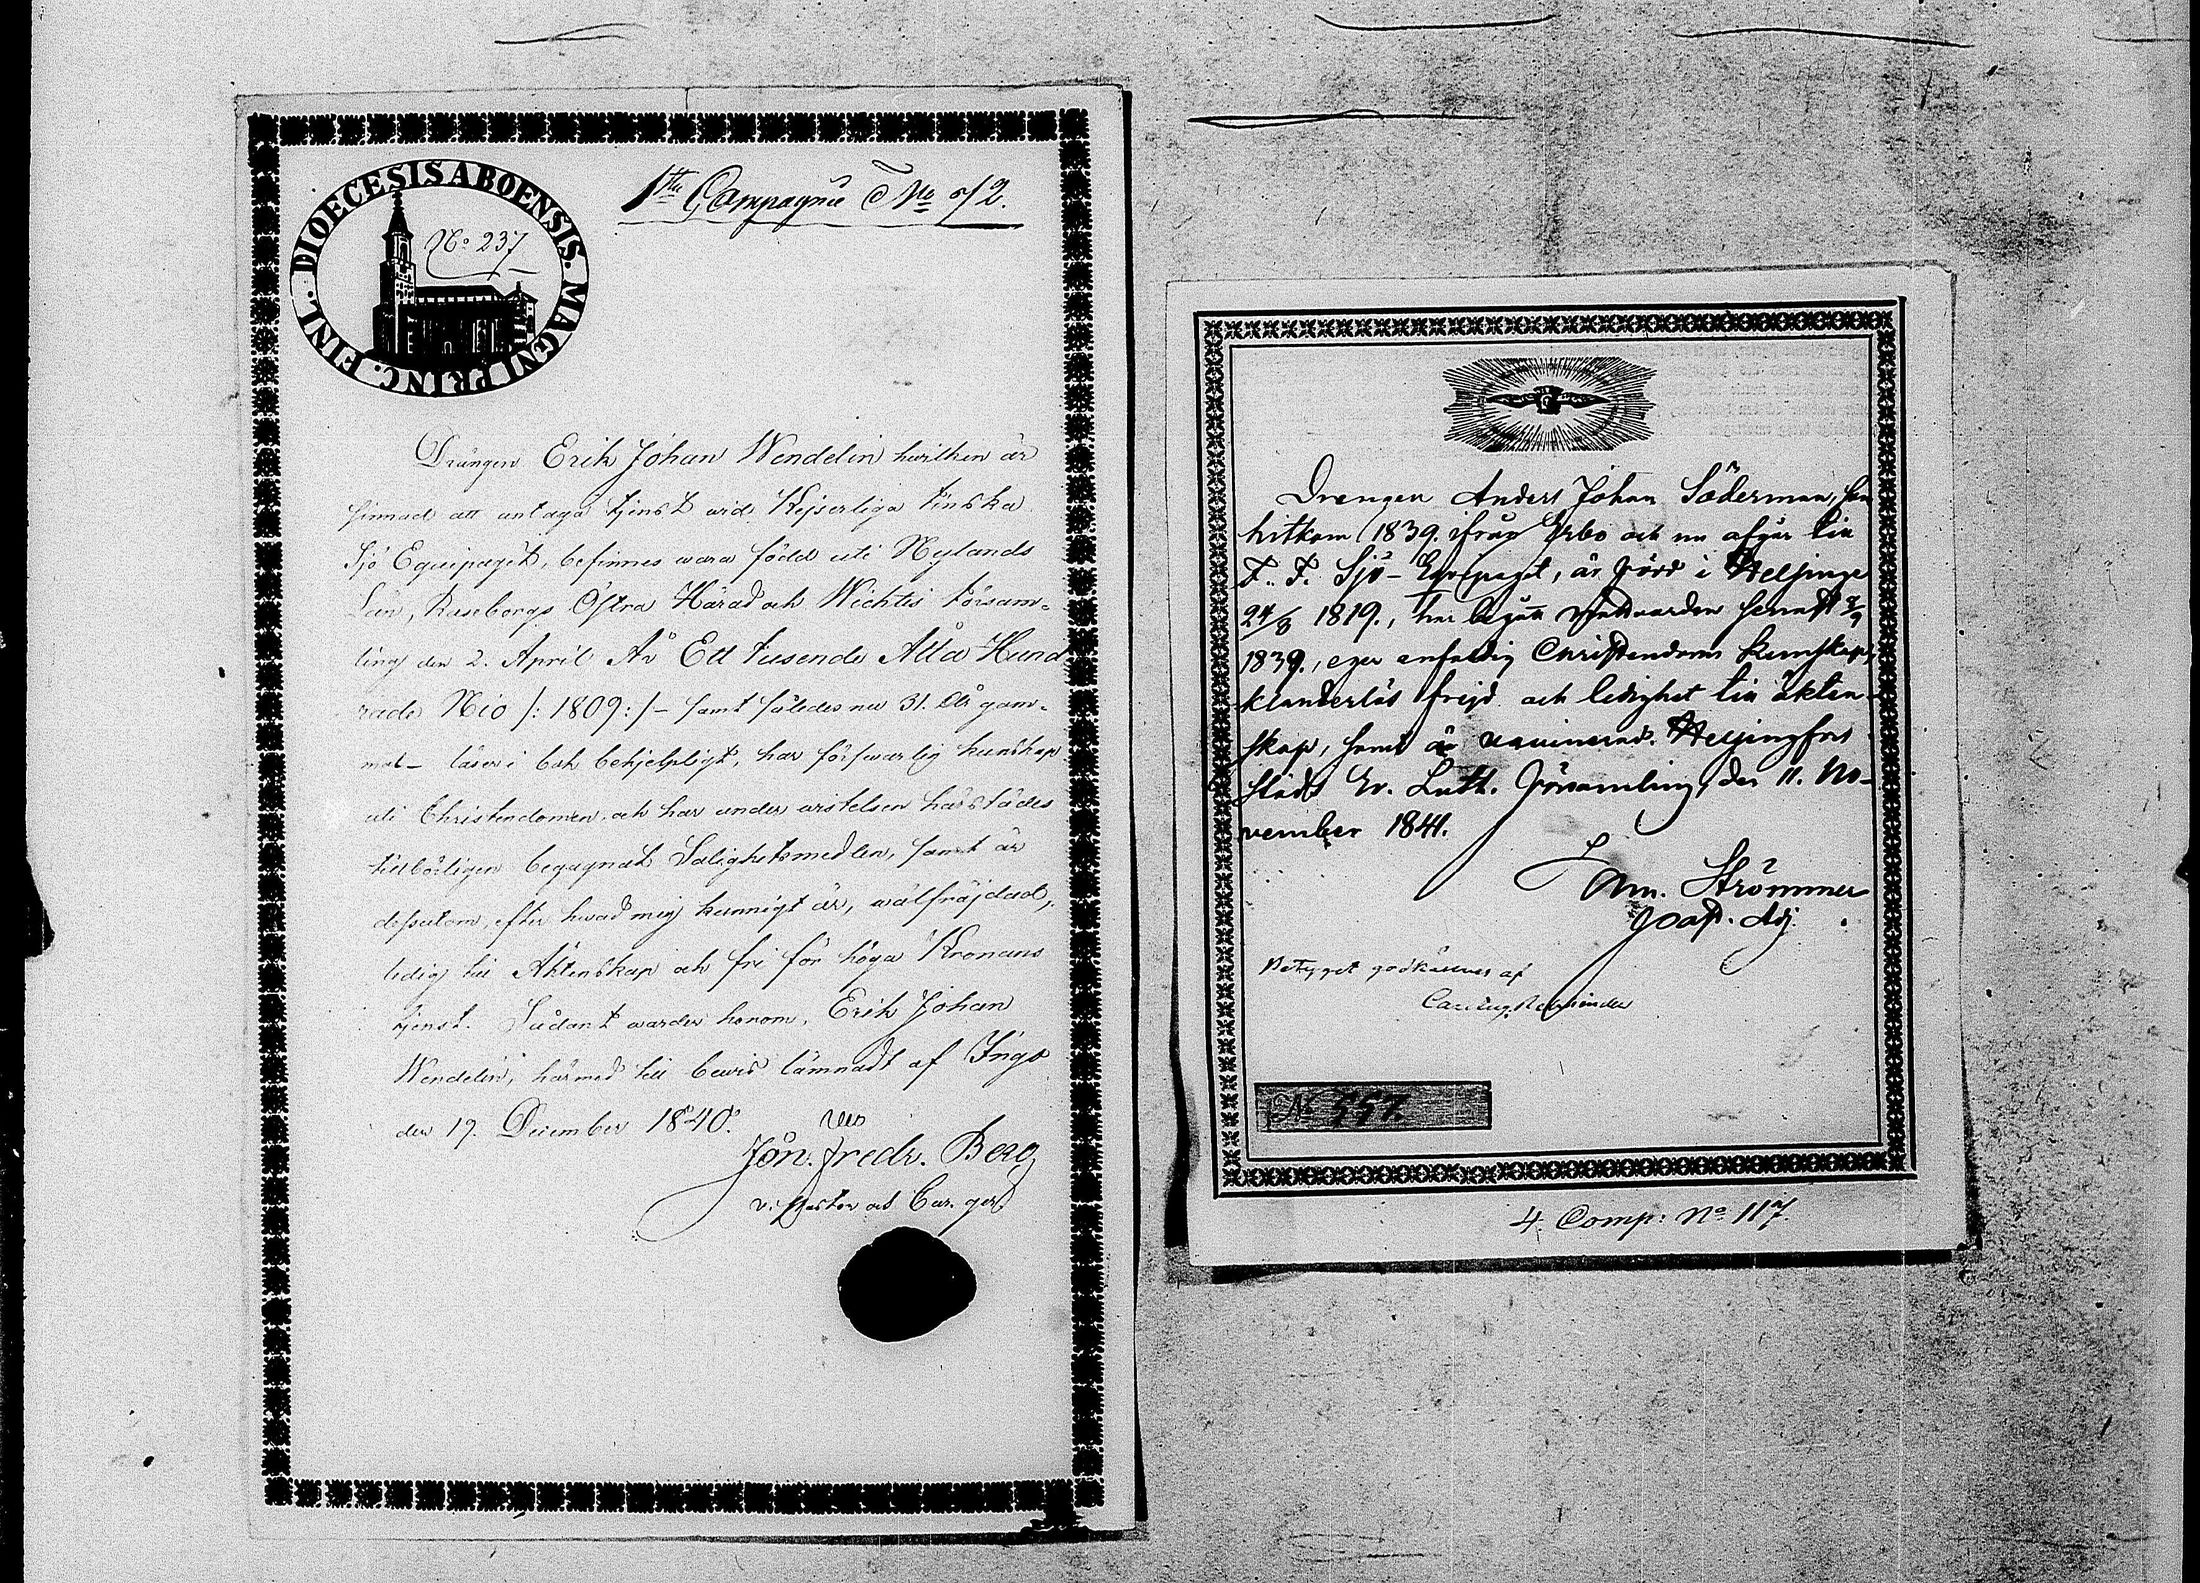 DIOECESIS ABOENSIS. MAGNI PRINC. FINL.
No 237
1sta Compagnie No 72.
Drängen Erik Johan Wendelin hvilken är
sinnad att antaga tjenst vid Kejserliga Finska
Sjö Equipaget, befinnes wara född uti Nylands
Län, Raseborgs Östra Härad och Wichtis Försam-
ling den 2. April År Ett tusende Åtta Hund
rade Nio /: 1809 :/ – samt således nu 31. år gam-
mal – läser i bok behjelpligt, har förswarlig kunskap
uti Christendomen, och har under vistelsen härstädes
tillbörligen begagnat Salighetsmedlen, samt är
dessutom, efter hvad mig kunnigt är, wälfräjdad,
ledig till Äktenskap och fri för höga Kronans
tjenst. Sådant warder honom, Erik Johan
Wendelin, härmed till bewis lämnadt af Ingo
den 19. December 1840.
Jon. Fredr. Berg
v. Pastor
Drengen Anders Johan Söderman, som
hitkom 1839. ifrån Åbo och nu afgår till
F. F. Sjö-Equipaget, är född i Helsinge
24/8 1819., har begått nattvarden senast
1839., eger enfaldig Christendoms kunskap,
klanderlös frejd och ledighet till äkten-
skap, samt är vaccinerad. Helsingfors
Stads Ev. Luth. Församling, den 11. No-
vember 1841.
Strömmer
Past. Adj.
Betyget godkännes af
No 557.
4. Comp: No 117.